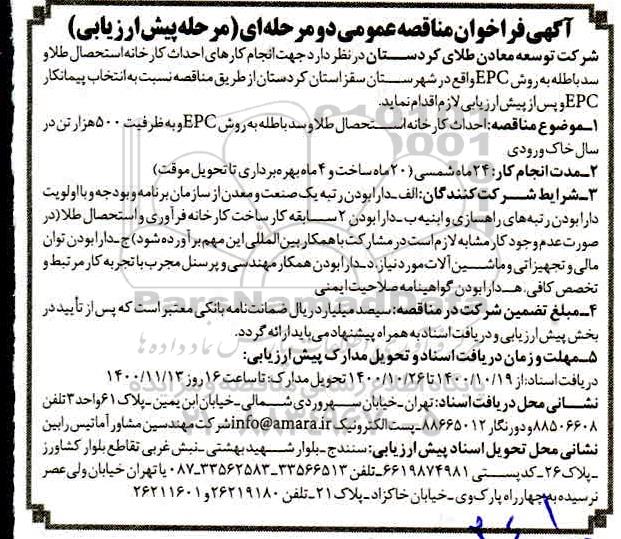 آگهی فراخوان مناقصه عمومی دو مرحله‌ای (مرحله پیش ارزیابی)
شرکت توسعه معادن طلای کردستان در نظر دارد جهت انجام کارهای احداث کارخانه استحصال طلا و
سد باطله به روش EPC واقع در شهرستان سقز استان کردستان از طریق مناقصه نسبت به انتخاب پیمانکار
EPC و پس از پیش ارزیابی لازم اقدام نماید.
۱-موضوع مناقصه: احداث کارخانه استحصال طلا و سد باطله به روش EPC و به ظرفیت ۵۰۰ هزار تن در
سال خاک ورودی
۲-مدت انجام کار: ۲۴ ماه شمسی (۲۰ ماه ساخت و ۴ ماه بهره برداری تا تحویل موقت)
۳-شرایط شرکت کنندگان: الف-دارا بودن رتبه یک صنعت و معدن از سازمان برنامه و بودجه و با اولویت
دارا بودن رتبه‌های راهسازی و ابنیه ب-دارا بودن ۲ سابقه کار ساخت کارخانه فرآوری و استحصال طلا (در
صورت عدم وجود کار مشابه لازم است در مشارکت با همکار بین المللی این مهم برآورده شود) ج-دارا بودن توان
مالی و تجهیزاتی و ماشین آلات مورد نیاز، د-دارا بودن همکار مهندسی و پرسنل مجرب با تجربه کار مرتبط و
تخصص کافی، هـ-دارا بودن گواهینامه صلاحیت ایمنی
۴-مبلغ تضمین شرکت در مناقصه: سیصد میلیارد ریال ضمانت نامه بانکی معتبر است که پس از تأیید در
بخش پیش ارزیابی و دریافت اسناد به همراه پیشنهاد می باید ارائه گردد.
۵-مهلت و زمان دریافت اسناد و تحویل مدارک پیش ارزیابی:
دریافت اسناد: از ۱۴۰۰/۱۰/۱۹ تا ۱۴۰۰/۱۰/۲۶ تحویل مدارک: تا ساعت ۱۶ روز ۱۴۰۰/۱۱/۱۳
نشانی محل دریافت اسناد: تهران-خیابان سهروردی شمالی-خیابان ابن یمین-پلاک ۶۱ واحد ۳ تلفن
۸۸۵۰۶۶۰۸ و دورنگار ۸۸۶۶۵۰۱۲-پست الکترونیک info@amara.ir شرکت مهندسین مشاور آماتیس رابین
نشانی محل تحویل اسناد پیش ارزیابی: سنندج-بلوار شهید بهشتی-نبش غربی تقاطع بلوار کشاورز
-پلاک ۲۶-کدپستی ۶۶۱۹۸۷۴۹۸۱-تلفن ۳۳۵۶۶۵۱۳-۳۳۵۶۲۵۸۳-۰۸۷ یا تهران خیابان ولی عصر
نرسیده به چهارراه پارک وی-خیابان خاکزاد-پلاک ۲۱-تلفن ۲۶۲۱۹۱۸۰ و ۲۶۲۱۱۶۰۱